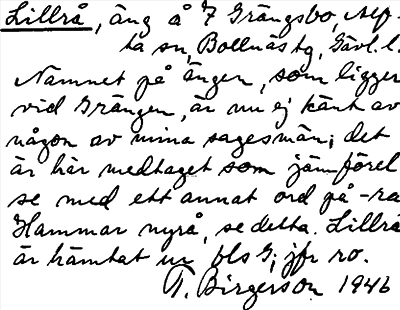 Lillrå, äng å 7 Grängsbo, Alf-
ta sn, Bollnäs tg, Gävl. l.
Namnet på ängen, som ligger
vid Grängen, är nu ej känt av
någon av mina sagesmän; det
är här medtaget som jämförel
se med ett annat ord på -rå
Hammar nyrå, se detta. Lillrå
är hämtat ur bls G; jfr ro.
T. Birgerson 1946